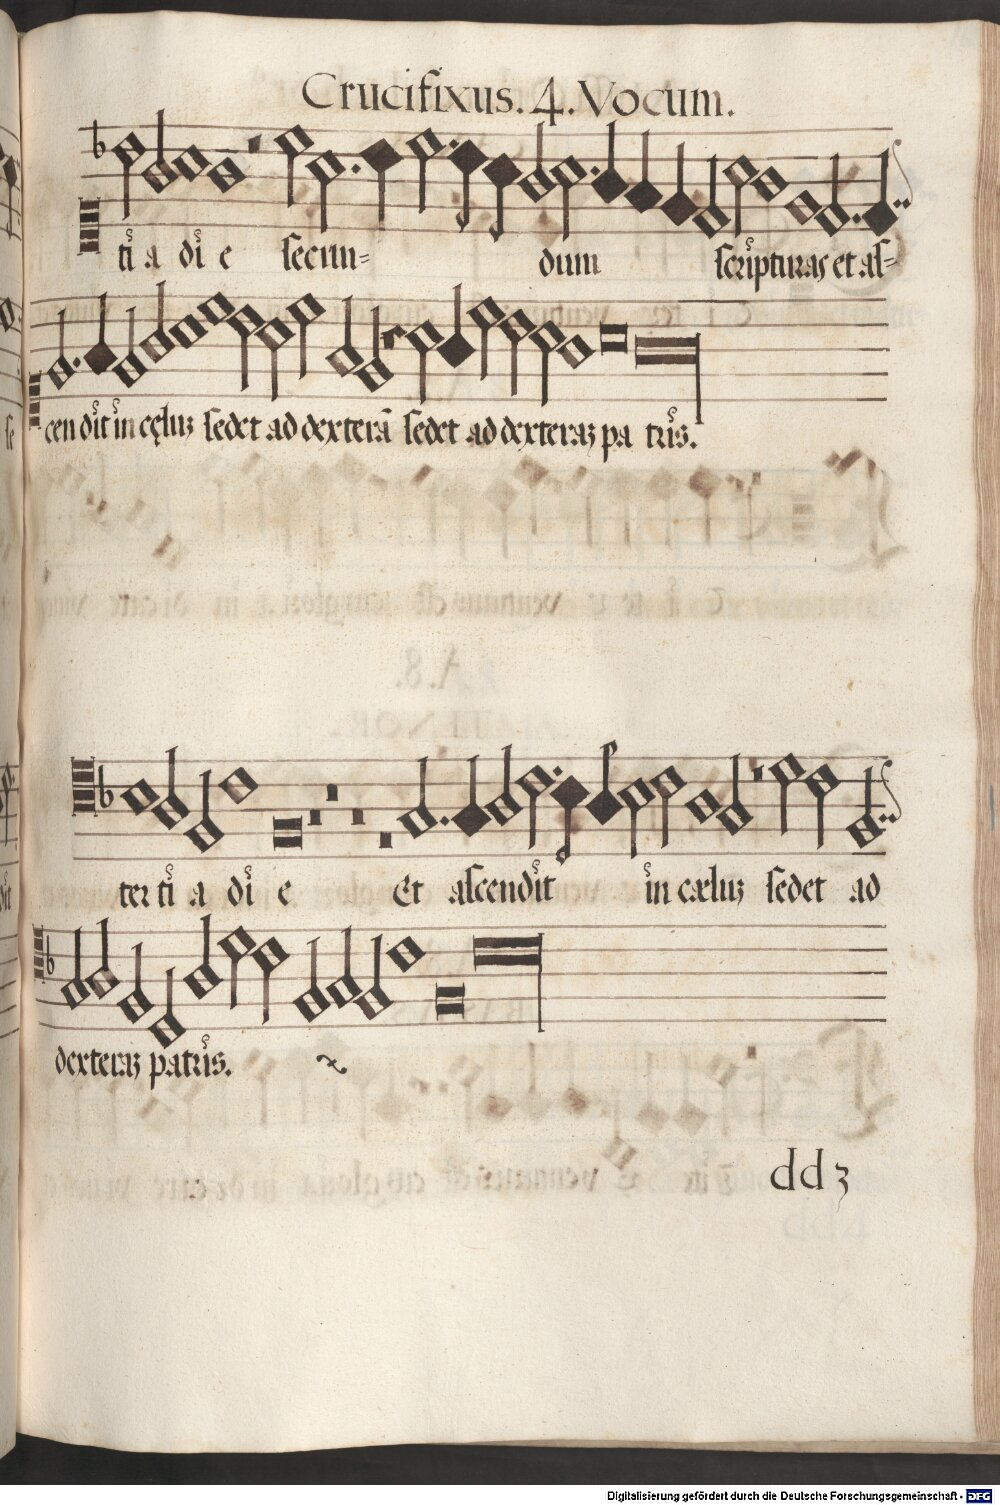 Crucifixus. 4. Vocum.
ti a di e secun= dum scripturas et as=
cendit in cęluz sedet ad dexterā sedet ad dexteraz pa tris.
ter ti a di e Et ascendit in cæluz sedet ad
dexteraz patris.
dd 3
Digitalisierung gefördert durch die Deutsche Forschungsgemeinschaft - DFG